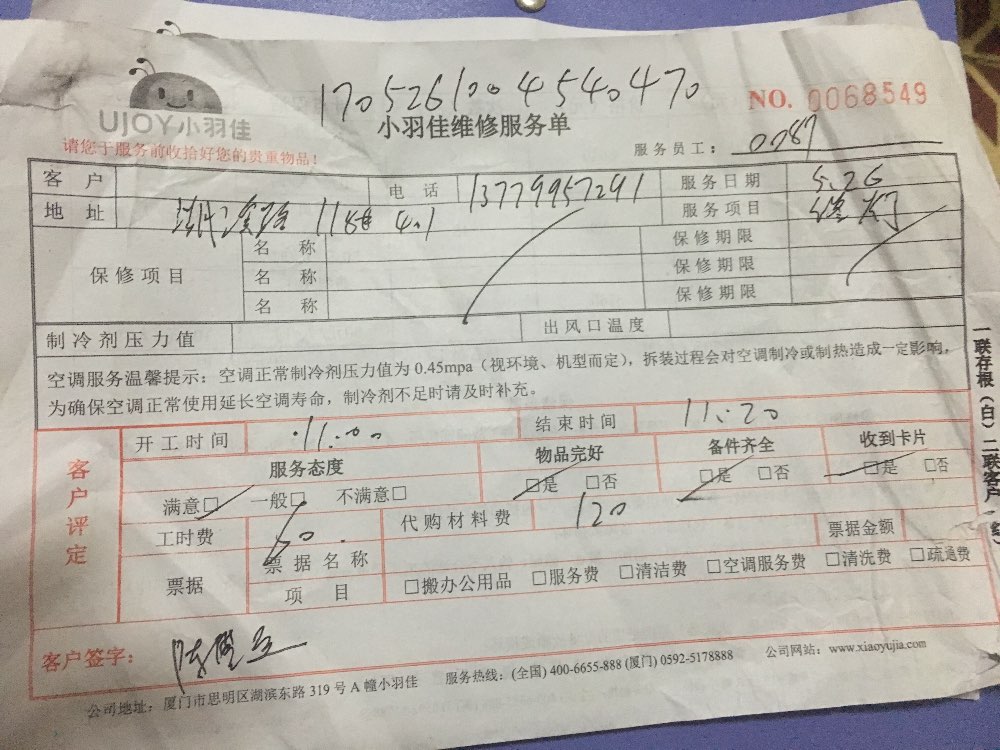 1705261004540470
NO. 0068549
UJOY小羽佳
小羽佳维修服务单
请您于服务前收拾好您的贵重物品！
服务员工： 0087
客户 电话 13779957291 服务日期 5.26
地址 118# 4.1 服务项目 修灯
保修项目 名称 保修期限
名称 保修期限
名称 保修期限
制冷剂压力值 出风口温度
空调服务温馨提示：空调正常制冷剂压力值为 0.45mpa（视环境、机型而定），拆装过程会对空调制冷或制热造成一定影响，
为确保空调正常使用延长空调寿命，制冷剂不足时请及时补充。
客户评定
开工时间 11:00 结束时间 11:20
服务态度 物品完好 备件齐全 收到卡片
满意□ 一般□ 不满意□ □是 □否 □是 □否 □是 □否
工时费 60. 代购材料费 120
票据 票据名称 票据金额
项目 □搬办公用品 □服务费 □清洁费 □空调服务费 □清洗费 □疏通费
客户签字：
公司地址：厦门市思明区湖滨东路 319 号 A 幢小羽佳 服务热线：(全国) 400-6655-888 (厦门) 0592-5178888 公司网站：www.xiaoyujia.com
一联存根（白）二联客户